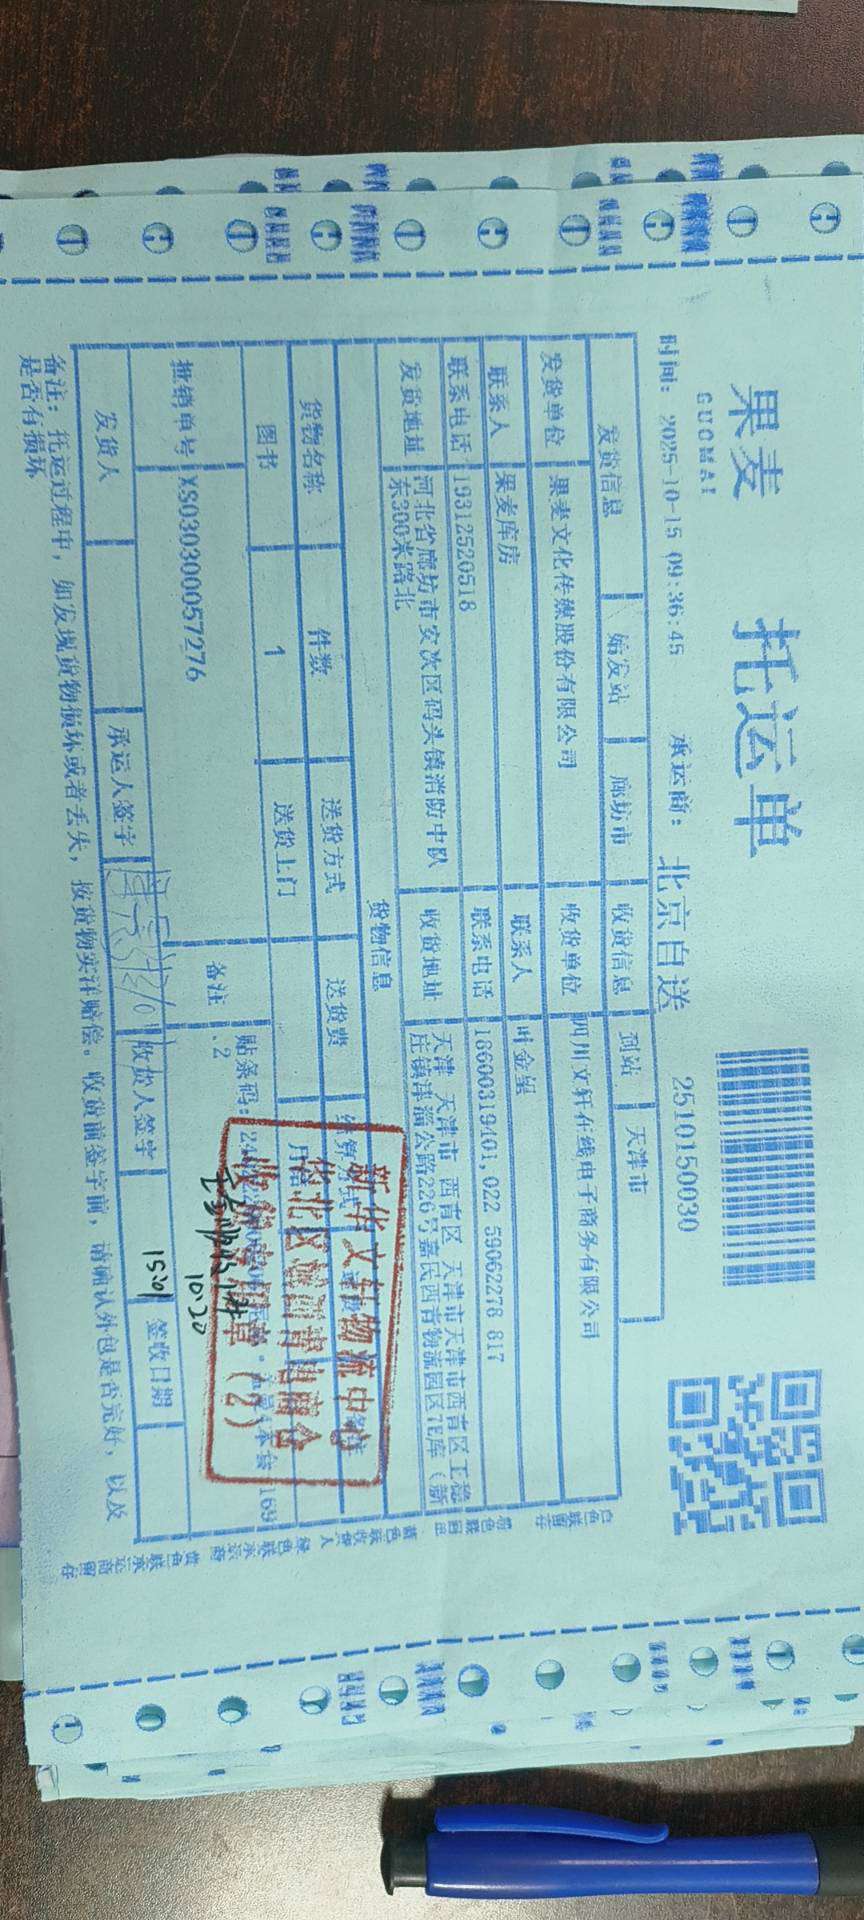 果麦
GUOMAI
托运单
时间: 2025-10-15 09:36:45 承运商: 北京自送 2510150030
发货信息 始发站 廊坊市 收货信息 到站 天津市
发货单位 果麦文化传媒股份有限公司 收货单位 四川文轩在线电子商务有限公司
联系人 果麦库房 联系人 叶金望
联系电话 19312520518 联系电话 18600319401,022 59062278 817
发货地址 河北省廊坊市安次区码头镇消防中队东300米路北 收货地址 天津 天津市 西青区 天津市天津市西青区王稳庄镇津淄公路226号嘉民西青物流园区7E库（新
货物信息
货物名称 件数 送货方式 送货费 结算
图书 1 送货上门 月
批销单号 XS030300057276 备注 贴条码:
、2
发货人 承运人签字 收货人签字 签收日期
10:20
新华文轩物流中心
华北区 电商仓
收货专用章（2）
备注: 托运过程中, 如发现货物损坏或者丢失, 按货物实洋赔偿。收货前签字前, 请确认外包是否完好, 以及
是否有损坏
白色联留存
粉色联回单
蓝色联收货人
绿色联承运商
黄色联承运商留存